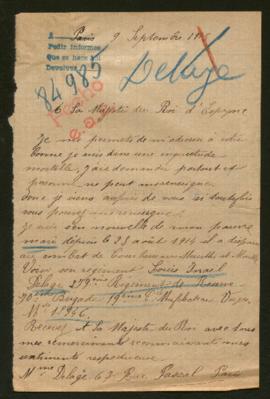 Paris 9 Septembre
A
Pedir informes
que se hace
Devolver
84985
Delage
A Sa Majesté du Roi d'Espagne
Je me permets de m'adresser à votre
bonne je suis dans une inquiétude
mortelle, j'ai demandé partout et
personne ne peut me renseigner
donc je viens auprès de vous si toutefois
vous pouvez me renseigner
Je suis sans nouvelle de mon pauvre
mari depuis le 28 août 1914 et a disparu
au combat de
Voici son régiment Louis Israel
Delage 279ème Régiment de Réserve
70ème Brigade 19ème
Recevez A la Majesté du Roi avec tous
mes remerciements reconnaissants mes
sentiments respectueux
Mme Delage 63 Rue Pascal Paris